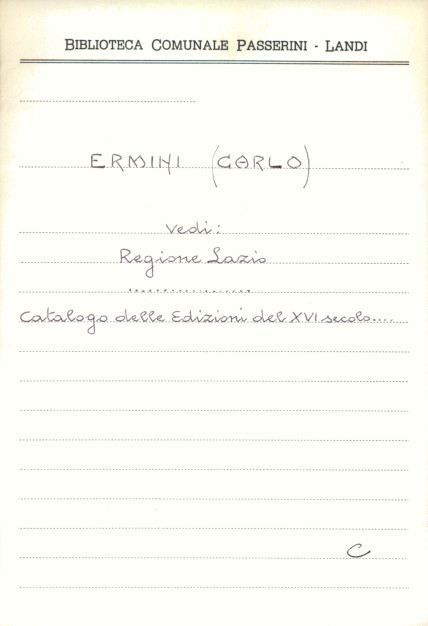 BIBLIOTECA COMUNALE PASSERINI - LANDI
ERMINI (CARLO)
Vedi:
Regione Lazio
....................
Catalogo delle Edizioni del XVI secolo....
C